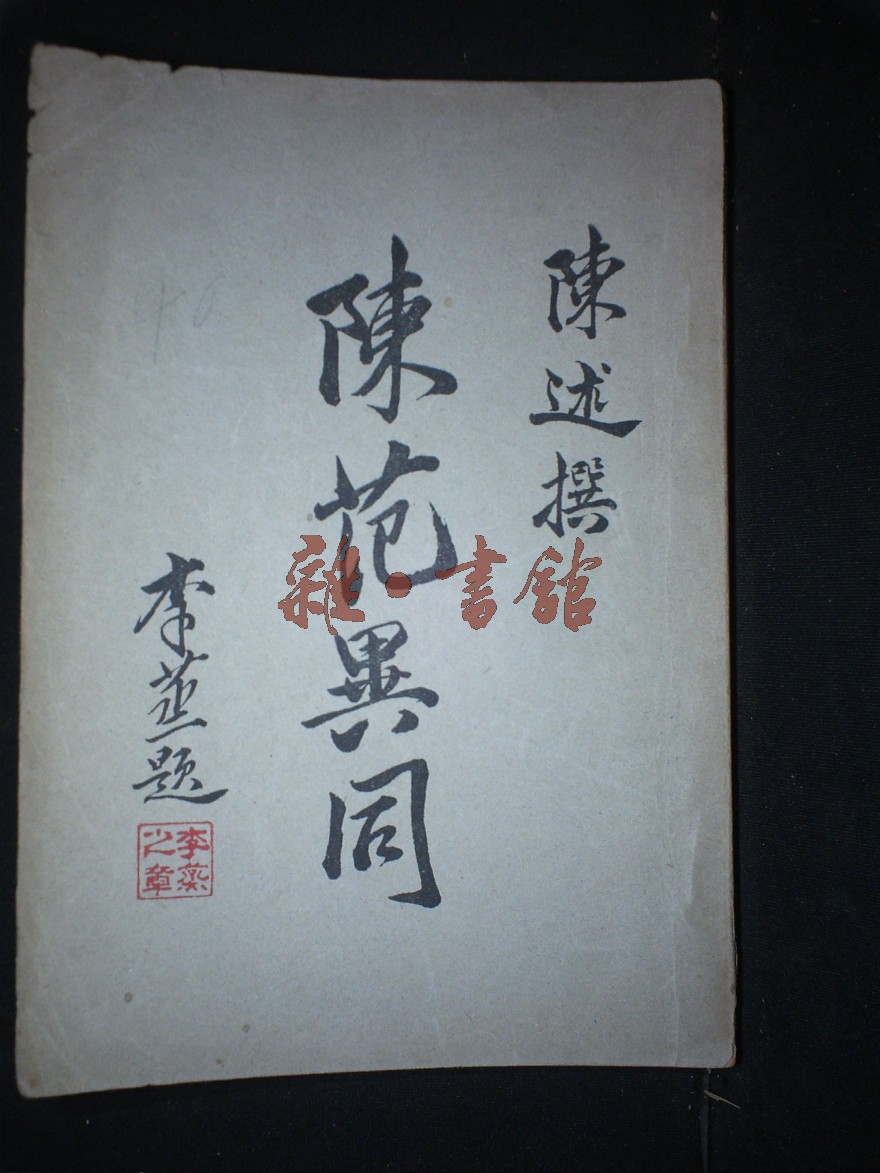 陳述撰
陳范異同
李蒸題
李蒸之章
雜·書館